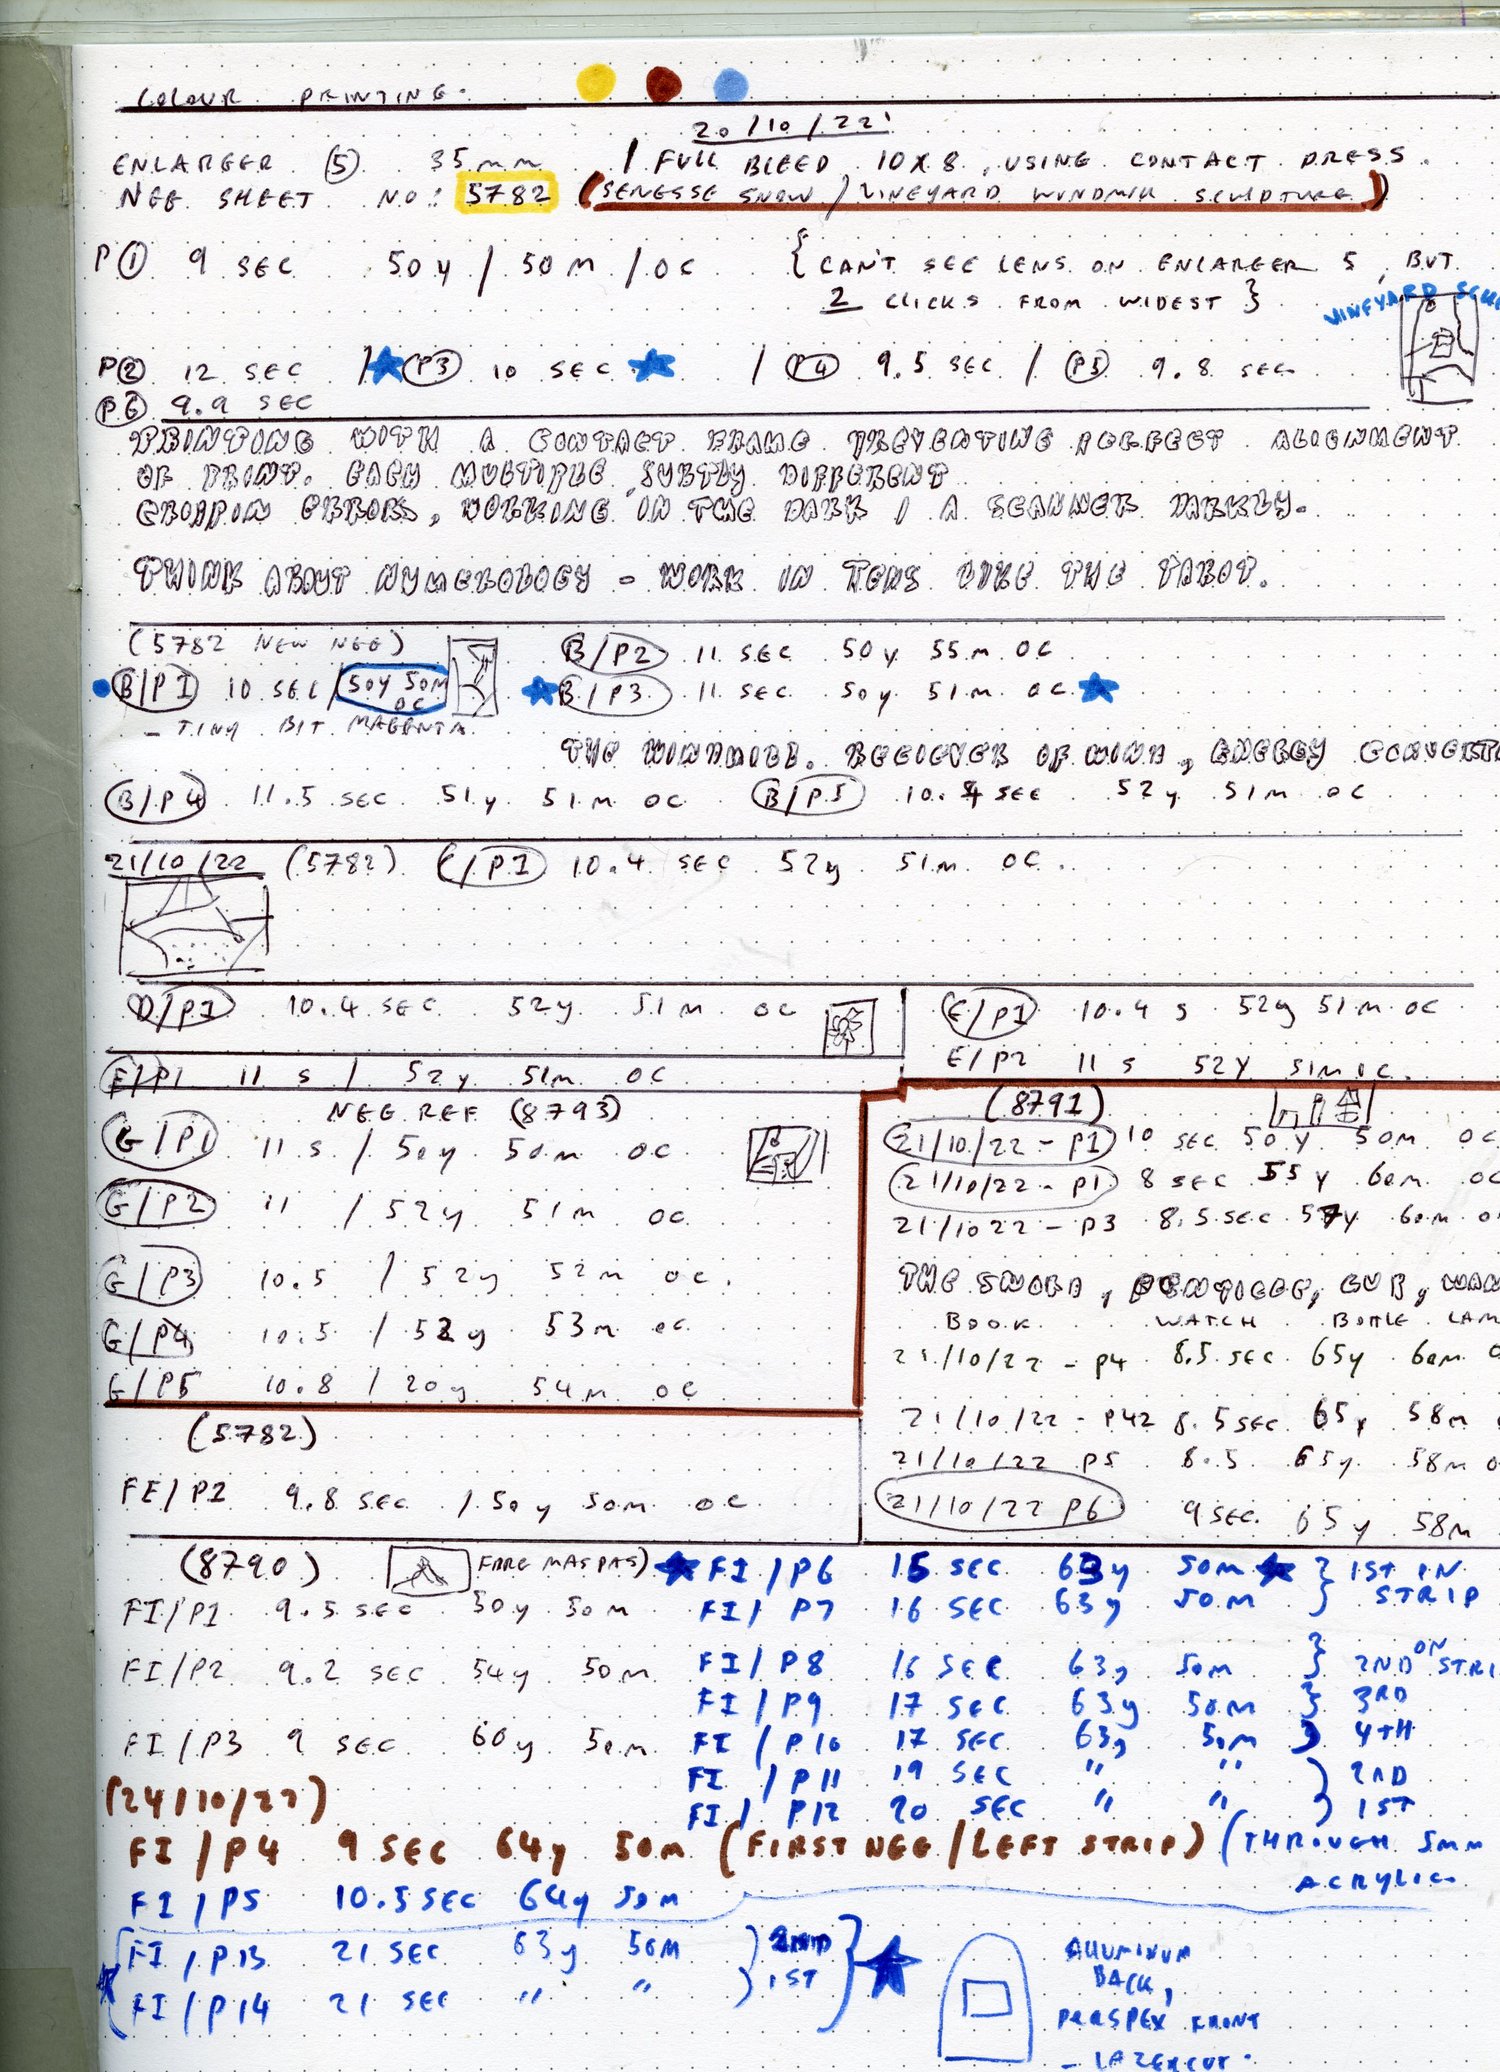 COLOUR PRINTING.
20/10/22
ENLARGER (5) 35mm / FULL BLEED 10X8, USING CONTACT PRESS.
NEG SHEET NO: 5782 (SENESSE SNOW / VINEYARD WINDMILL SCULPTURE)
P(1) 9 SEC 50Y / 50M / 0C {CAN'T SEE LENS ON ENLARGER 5, BUT
2 CLICKS FROM WIDEST}
VINEYARD
P(2) 12 SEC / P3 10 SEC / P4 9.5 SEC / P5 9.8 SEC
P6 9.9 SEC
PRINTING WITH A CONTACT FRAME PREVENTING PERFECT ALIGNMENT
OF PRINT. EACH MULTIPLE SUBTLY DIFFERENT
CROPPIN ERRORS, WORKING IN THE DARK / A SCANNER DARKLY.
THINK ABOUT NUMEROLOGY - WORK IN TENS LIKE THE TAROT.
(5782 NEW NEG)
B/P1 10 SEC / 50Y 50M 0C
- TINY BIT MAGENTA
B/P2 11 SEC 50Y 55M 0C
B/P3 11 SEC 50Y 51M 0C
THE WINDMILL. RECIEVER OF WIND, ENERGY
B/P4 11.5 SEC 51Y 51M 0C B/P5 10.4 SEC 52Y 51M 0C
21/10/22 (5782) C/P1 10.4 SEC 52Y 51M 0C.
D/P1 10.4 SEC 52Y 51M 0C
E/P1 10.4 S 52Y 51M 0C
E/P2 11 S 52Y 51M 0C.
F/P1 11 S / 52Y 51M 0C
NEG REF (8793)
G/P1 11 S / 50Y 50M 0C
G/P2 11 / 52Y 51M 0C
G/P3 10.5 / 52Y 52M 0C.
G/P4 10.5 / 52Y 53M 0C
G/P5 10.8 / 20Y 54M 0C
(8791)
21/10/22 - P1 10 SEC 50Y 50M 0C
21/10/22 - P1 8 SEC 55Y 60M 0C
21/10/22 - P3 8.5 SEC 57Y 60M
THE SWORD, PENTICLE, CUP,
BOOK WATCH BOTTLE
21/10/22 - P4 8.5 SEC 65Y 60M
21/10/22 - P42 8.5 SEC 65Y 58M
21/10/22 P5 8.5 65Y 58M
21/10/22 P6 9 SEC. 65Y 58M
(5782)
FE/P2 9.8 SEC / 50Y 50M 0C
(8790)
FI/P1 9.5 SEC 50Y 50M
FI/P2 9.2 SEC 54Y 50M
FI/P3 9 SEC 60Y 50M
FI/P6 15 SEC 63Y 50M } 1ST IN
FI/P7 16 SEC 63Y 50M } STRIP
FI/P8 16 SEC 63Y 50M } 2ND ON
FI/P9 17 SEC 63Y 50M } 3RD
FI/P10 17 SEC 63Y 50M } 4TH
FI/P11 19 SEC " " } 2ND
FI/P12 20 SEC " " } 1ST
(24/10/22)
FI/P4 9 SEC 64Y 50M (FIRST NEG/LEFT STRIP) (THROUGH 5MM
ACRYLIC
FI/P5 10.5 SEC 64Y 50M
FI/P13 21 SEC 63Y 50M } 2ND
FI/P14 21 SEC " " } 1ST
ALUMINUM
BACK,
PERSPEX FRONT
- LAZERCUT.